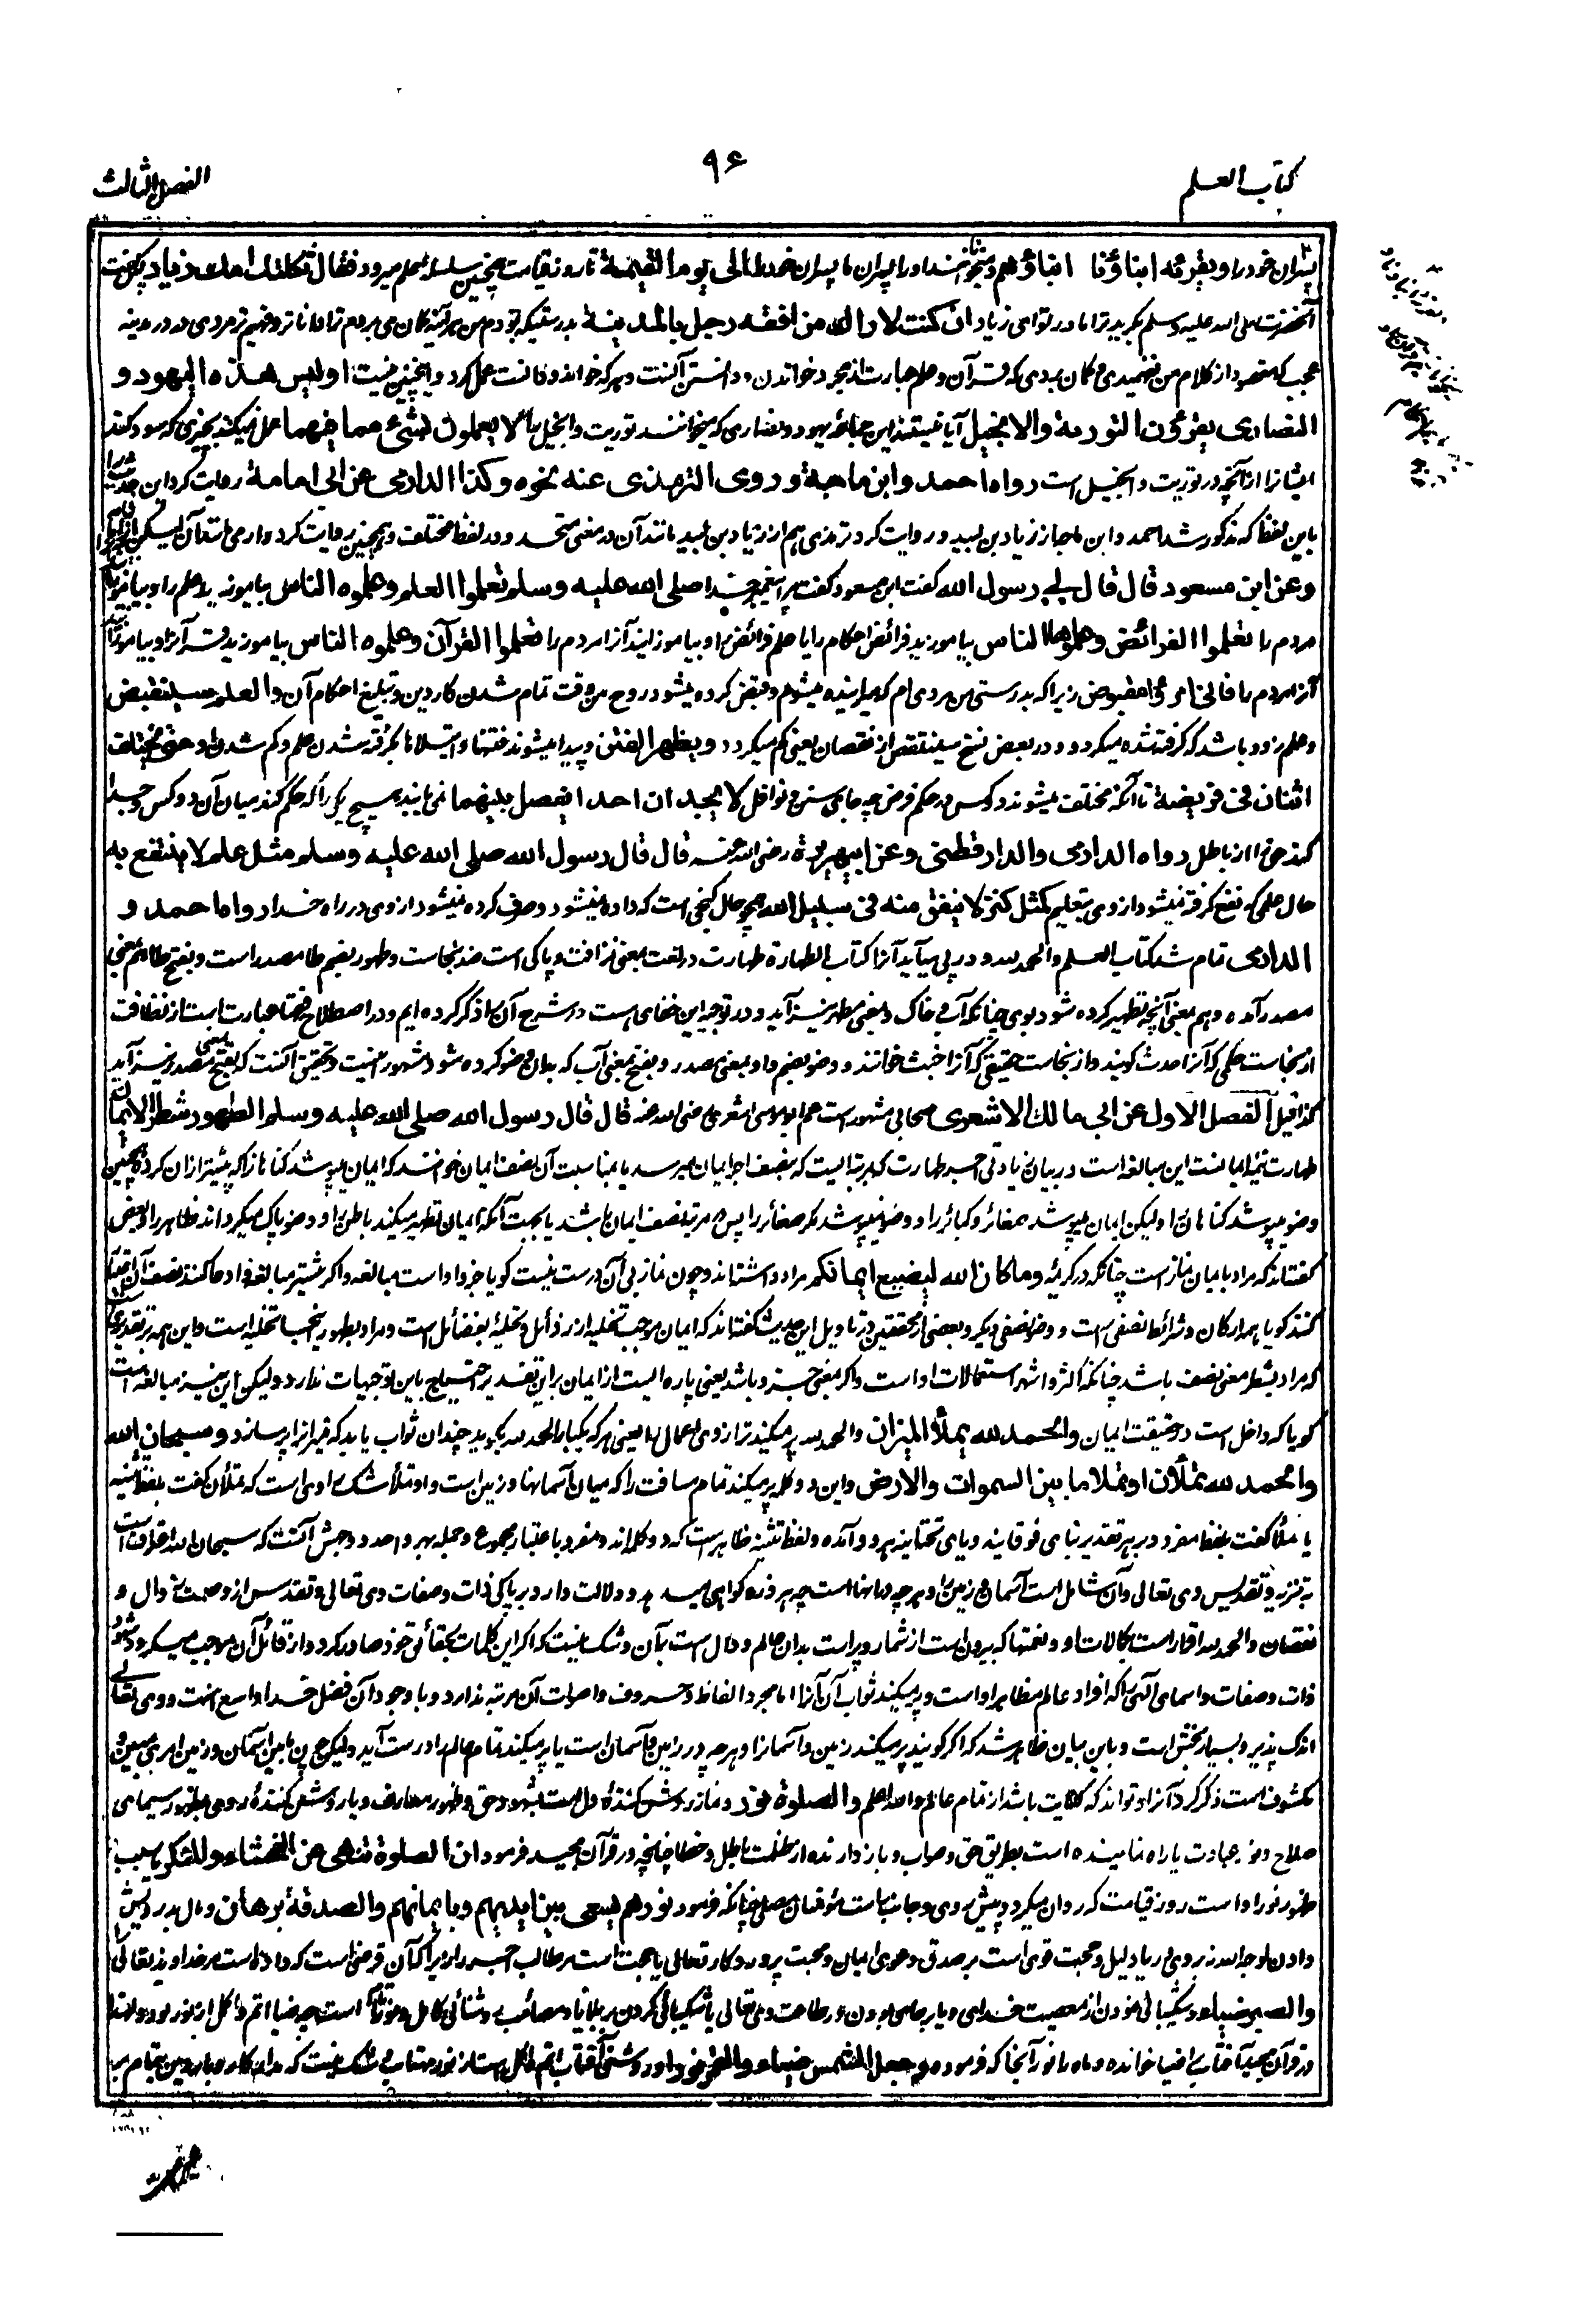 کتاب العلم
۹۶
الفصل الثالث
پسران خود را و یقرئه ابناؤنا ابناؤهم و میخوانند او را پسران ما پسران خود را الی یوم القیمة تا روز قیامت همچنین سلسله علم میرود فقال ثکلتك امك زیاد پس گفت
آنحضرت صلی الله علیه و سلم بگرید ترا مادر تو ای زیاد ان کنت لاراك من افقه رجل بالمدینة بدرستیکه بودم من هر آئینه گمان می بردم ترا داناتر و فهیم تر مردی که در مدینه
عجب که مقصود از کلام من نفهمیدی و گمان بردی که قرآن و علم عبارت از مجرد خواندن و دانستن آنست و هر که خواند و دانست عمل کرد و اینچنین نیست اولیس هذه الیهود و
النصاری یقرؤن التوریة والانجیل آیا نیستند این جماعه یهود و نصاری که میخوانند توریت و انجیل را لا یعملون بشیء مما فیهما عمل نمیکنند بچیزی که سود کند
ایشانرا از آنچه در توریت و انجیل است رواه احمد وابن ماجة و روی الترمذی عنه نحوه وکذا الدارمی عن ابی امامة روایت کرد این حدیث را
باین لفظ که مذکور شد احمد و ابن ماجه از زیاد بن لبید و روایت کرد ترمذی هم از زیاد بن لبید مانند آن در معنی متحد و در لفظ مختلف و همچنین روایت کرد دارمی مانند آن لیکن از ابو امامه
وعن ابن مسعود قال قال لی رسول الله گفت ابن مسعود گفت مرا پیغمبر خدا صلی الله علیه وسلم تعلموا العلم وعلموه الناس بیاموزید علم را و بیاموزانید
مردم را تعلموا الفرائض وعلموها الناس بیاموزید فرائض احکام را یا علم فرائض را و بیاموزانید آنرا مردم را تعلموا القرآن وعلموه الناس بیاموزید قرآن را و بیاموزانید
آنرا مردم را فانی امرؤ مقبوض زیرا که بدرستی من مردی ام که میرانیده میشوم و قبض کرده میشود روح من وقت تمام شدن کار دین و تبلیغ احکام آن والعلم سینقبض
و علم زود باشد که گرفته شده میگردد و در بعض نسخ سینتقص از نقصان یعنی کم میگردد ویظهر الفتن و پیدا میشوند فتنها و ابتلاها بگرفته شدن علم و کم شدن او حتی یختلف
اثنان فی فریضة تا آنکه مختلف میشوند دو کس در حکم فرض چه جای سنن و نوافل لا یجدان احدا یفصل بینهما نمی یابند هیچ یکی را که حکم کند میان آن دو کس و جدا
کند حق را از باطل رواه الدارمی والدارقطنی وعن ابی هریرة رضی الله عنه قال قال رسول الله صلی الله علیه وسلم مثل علم لا ینتفع به
حال علمی که نفع گرفته نمیشود از وی بتعلیم کمثل کنز لا ینفق منه فی سبیل الله همچو حال گنجی است که داده نمیشود و صرف کرده نمیشود از وی در راه خدا رواه احمد و
الدارمی تمام شد کتاب العلم والحمد لله و در پی می آید آنرا کتاب الطهارة طهارت در لغت بمعنی نزافت و پاکی است ضد نجاست و طهور بضم طا مصدر است و بفتح طا هم بمعنی
مصدر آمده و هم بمعنی آنچه تطهیر کرده شود بوی چنانکه آب و خاک و بمعنی مطهر نیز آید و در توجیه این خفای است در شرح آن را ذکر کرده ایم و در اصطلاح فقها عبارت است از نظافت
از نجاست حکمی که آنرا حدث گویند و از نجاست حقیقی که آنرا خبث خوانند و وضو بضم واو بمعنی مصدر و بفتح بمعنی آب که بدان وضو کرده شود مشهور اینست و تحقیق آنست که بفتح بمعنی مصدر نیز آید
کذا قیل الفصل الاول عن ابی مالك الاشعری صحابی مشهور است عم ابو موسی اشعری رضی الله عنه قال قال رسول الله صلی الله علیه وسلم الطهور شطر الایمان
طهارت نیمه ایمانست این مبالغه است در بیان زیادتی اجر طهارت که بمرتبه ایست که بنصف اجر ایمان میرسد یا بمناسبت آن نصف ایمان خوانند که ایمان میپوشد گناهانرا که پیشتر از ان کرده همچنین
وضو میپوشد گناهان را و لیکن ایمان میپوشد صغائر و کبائر را و وضو نمیپوشد مگر صغائر را پس در مرتبه نصف ایمان باشد یا بجهت آنکه ایمان تطهیر میکند باطن را و وضو پاک میگرداند ظاهر را و بعضی
گفته‌اند که مراد بایمان نماز است چنانکه در کریمه وما کان الله لیضیع ایمانکم مراد داشته‌اند و چون نماز بی آن درست نیست گویا جزو او است مبالغه و اگر بیشتر مبالغه و ادعا کنند نصف آن اعتبار
کنند گویا همه ارکان و شرائط نصفی است و وضو نصفی دیگر و بعضی از محققین در تاویل این حدیث گفته‌اند که ایمان موجب تخلیه از رذائل و تحلیه بفضائل است و مراد بطهور نیست تخلیه است و این همه بر تقدیری
که مراد بشطر معنی نصف باشد چنانکه اکثر و اشهر استعمالات او است و اگر بمعنی جزو باشد یعنی پاره ایست از ایمان برین تقدیر احتیاج باین توجیهات ندارد ولیکن این نیز مبالغه است
گویا که داخل است در حقیقت ایمان والحمد لله یملأ المیزان والحمد لله پر میکند ترازوی اعمال را یعنی هر که یکبار الحمد لله بگوید چندان ثواب یابد که میزانرا پر سازد وسبحان الله
والحمد لله تملآن او تملأ ما بین السموات والارض و این دو کلمه پر میکند تمام مسافت را که میان آسمانها و زمین است و او تملأ شک راوی است که تملآن گفت بلفظ تثنیه
یا تملأ گفت بلفظ مفرد و بر هر تقدیر بتای فوقانیه و یای تحتانیه هر دو آمده و لفظ تثنیه ظاهر است که دو کلمه‌اند و مفرد باعتبار مجموع و جمله هر واحد و وجهش آنست که سبحان الله اقرار است
به تنزیه و تقدیس وی تعالی و آن شامل است آسمان و زمین را و هر چه در آنها است چه هر ذره گواهی میدهد و دلالت دارد بر پاکی ذات و صفات وی تعالی و تقدس از وصمت زوال و
نقصان والحمد لله اقرار است بکمالات او و نعمتها که بیرون است از شمار و پر است بدان عالم و دال است بآن و شک نیست که اگر این کلمات بحقائق خود صادر گردد از قائل آن موجب میگردد شهود
ذات و صفات و اسمای الهی را که افراد عالم مظاهر او است و پر میکند ثواب آن آنرا اما مجرد الفاظ و حروف و اصوات آن مرتبه ندارد و با وجود آن فضل خدا واسع است و وی تعالی
اندک پذیر و بسیار بخش است و باین بیان ظاهر شد که اگر گویند پر میکند زمین و آسمانرا و هر چه در زمین و آسمان است یا پر میکند تمام عالم را درست آید ولیکن چون ما بین آسمان و زمین امری مبین و
مکشوف است ذکر کرد آنرا و تواند که کنایت باشد از تمام عالم والله اعلم والصلوة نور و نماز روشن کننده دل است بشهود حق و ظهور معارف و یا روشن کننده روی بظهور سیمای
صلاح و نور عبادت یا راه نماینده است بطریق حق و صواب و باز دارنده از ظلمت باطل و خطا چنانچه در قرآن مجید فرمود ان الصلوة تنهی عن الفحشاء والمنکر یا سبب
ظهور نور او است روز قیامت که روان میگردد پیش روی و جانب راست مؤمنان مصلی چنانکه فرمود نورهم یسعی بین ایدیهم وبایمانهم والصدقة برهان و مال بدرویش
دادن لوجه الله نه بروی ریا دلیل و حجت قوی است بر صدق دعوی ایمان و محبت پروردگار تعالی یا حجت است بر طالب اجر را زیرا که آن قرضی است که داده است مر خداوند تعالی را
والصبر ضیاء و شکیبائی نمودن از معصیت خدای و پا بر جای بودن بر طاعت وی تعالی یا شکیبائی کردن بر بلایا و مصائب روشنائی کامل و نور تمام است چه ضیا اتم و اکمل از نور بود و لهذا
در قرآن مجید آفتاب را ضیا خوانده و ماه را نور آنجا که فرموده وجعل الشمس ضیاء والقمر نورا و روشنی آفتاب اتم و اکمل است از نور مهتاب و شک نیست که مدار کار و بار دین بتمام بر